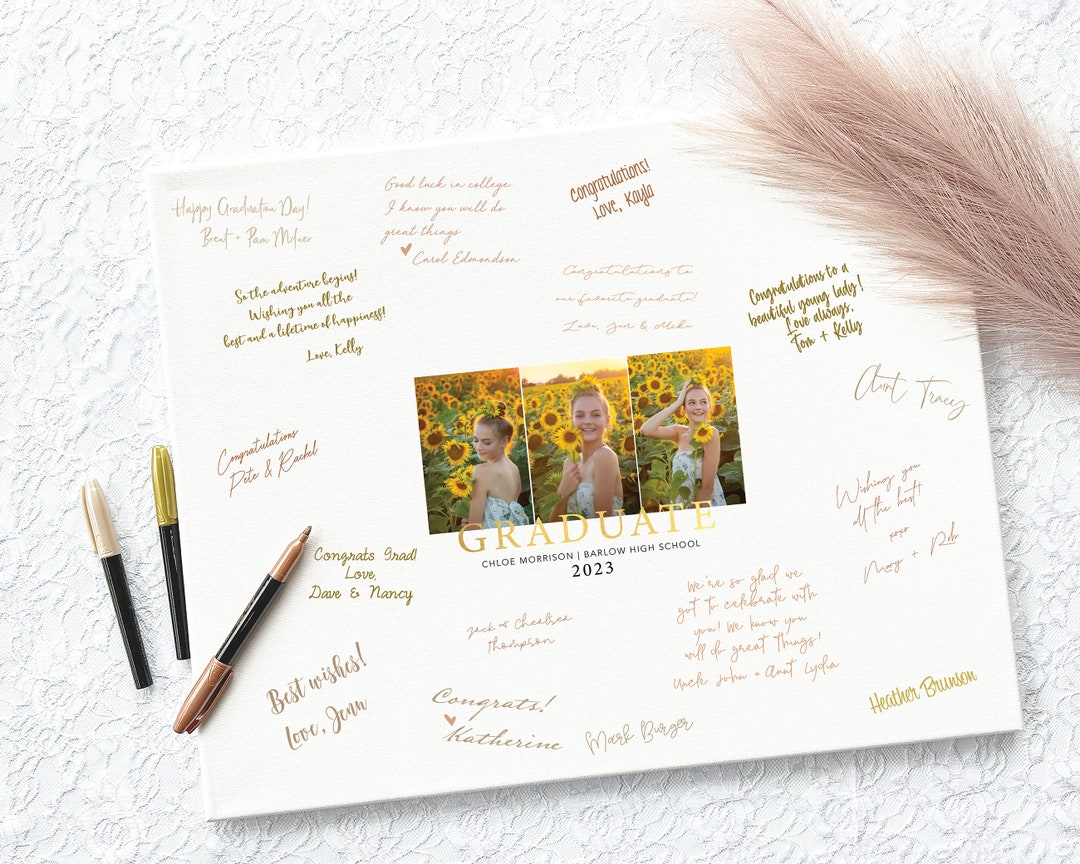 Happy Graduation Day!
Brent + Pam Milner
Good luck in college
I know you will do
great things
Carol Edmondson
Congratulations!
Love, Kayla
So the adventure begins!
Wishing you all the
best and a lifetime of happiness!
Love, Kelly
Congratulations to
our favorite graduate!
Love, Jan & Mike
Congratulations to a
beautiful young lady!
Love always,
Tom + Kelly
Aunt Tracy
Congratulations
Pete & Rachel
GRADUATE
CHLOE MORRISON | BARLOW HIGH SCHOOL
2023
Wishing you
all the best!
xoxo
Mary + Rob
Congrats Grad!
Love,
Dave & Nancy
Zack & Chealsea
Thompson
We're so glad we
got to celebrate with
you! We know you
will do great things!
Uncle John + Aunt Lydia
Best wishes!
Love, Jenn
Congrats!
Katherine
Mark Burger
Heather Brunson